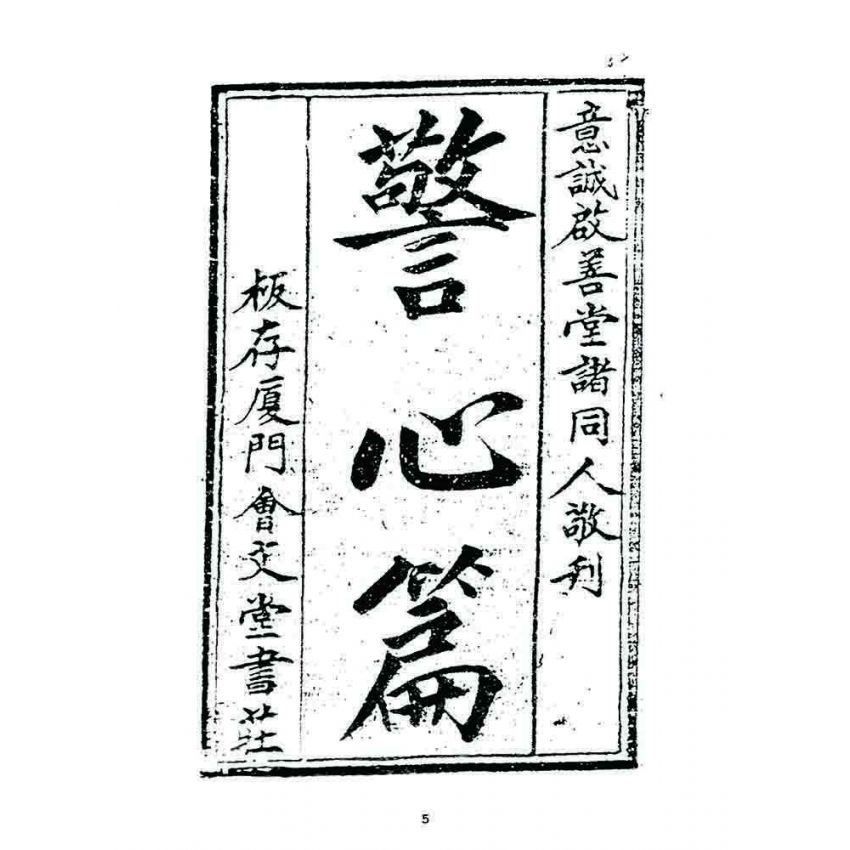 意誠啟善堂諸同人敬刋
警心篇
板存厦門會文堂書莊
5